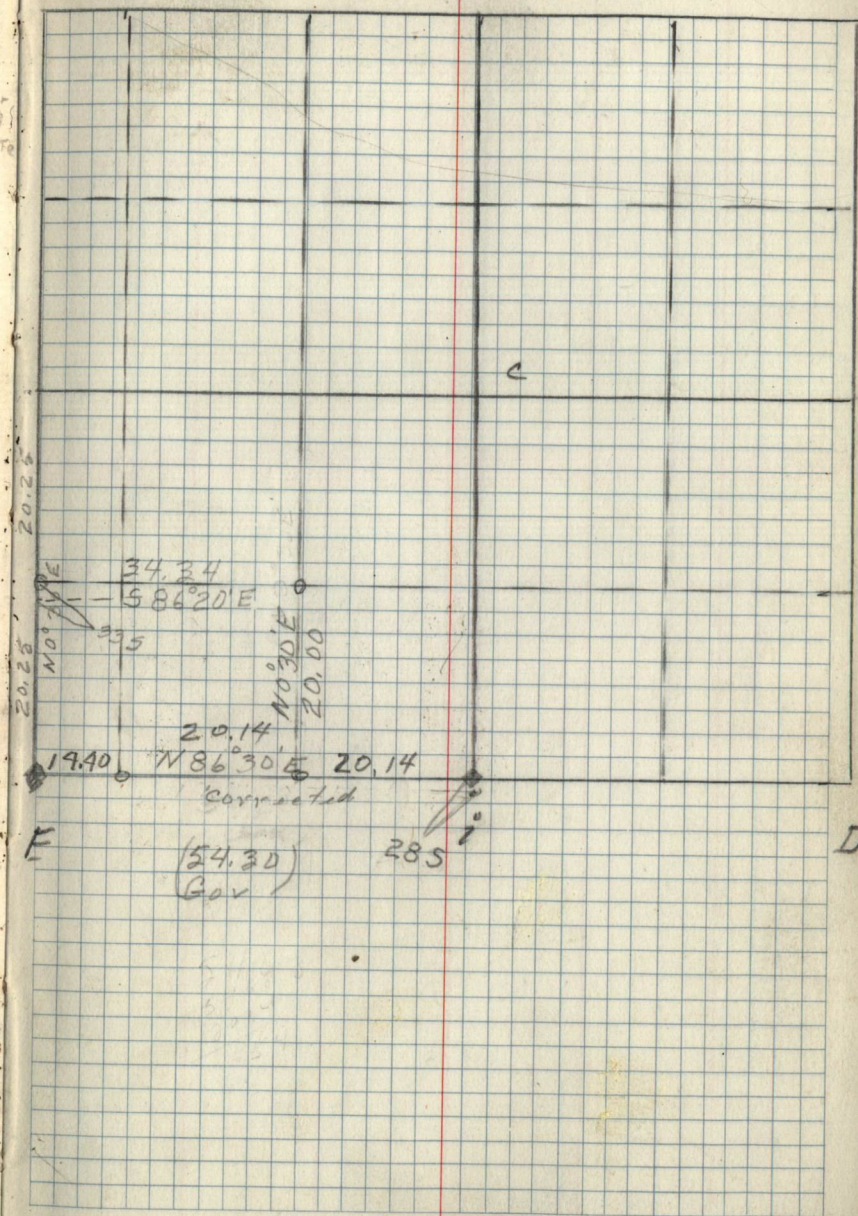 C
20.25
34.34
S 86°20' E
33 S
N 0° E
20.25
N 0°30' E
20.00
20.14
14.40 N 86°30' E 20.14
corrected
E
(54.30)
Gov
28 S
1
D